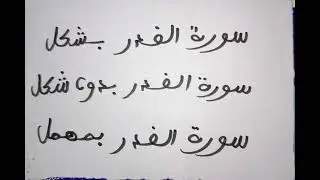 سورة القدر بشكل
سورة القدر بدون شكل
سورة القدر بمهمل